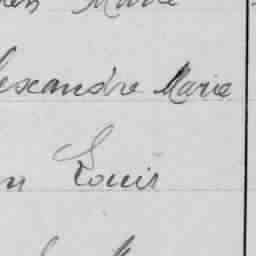 Marie
lexandre Marie
n Louis